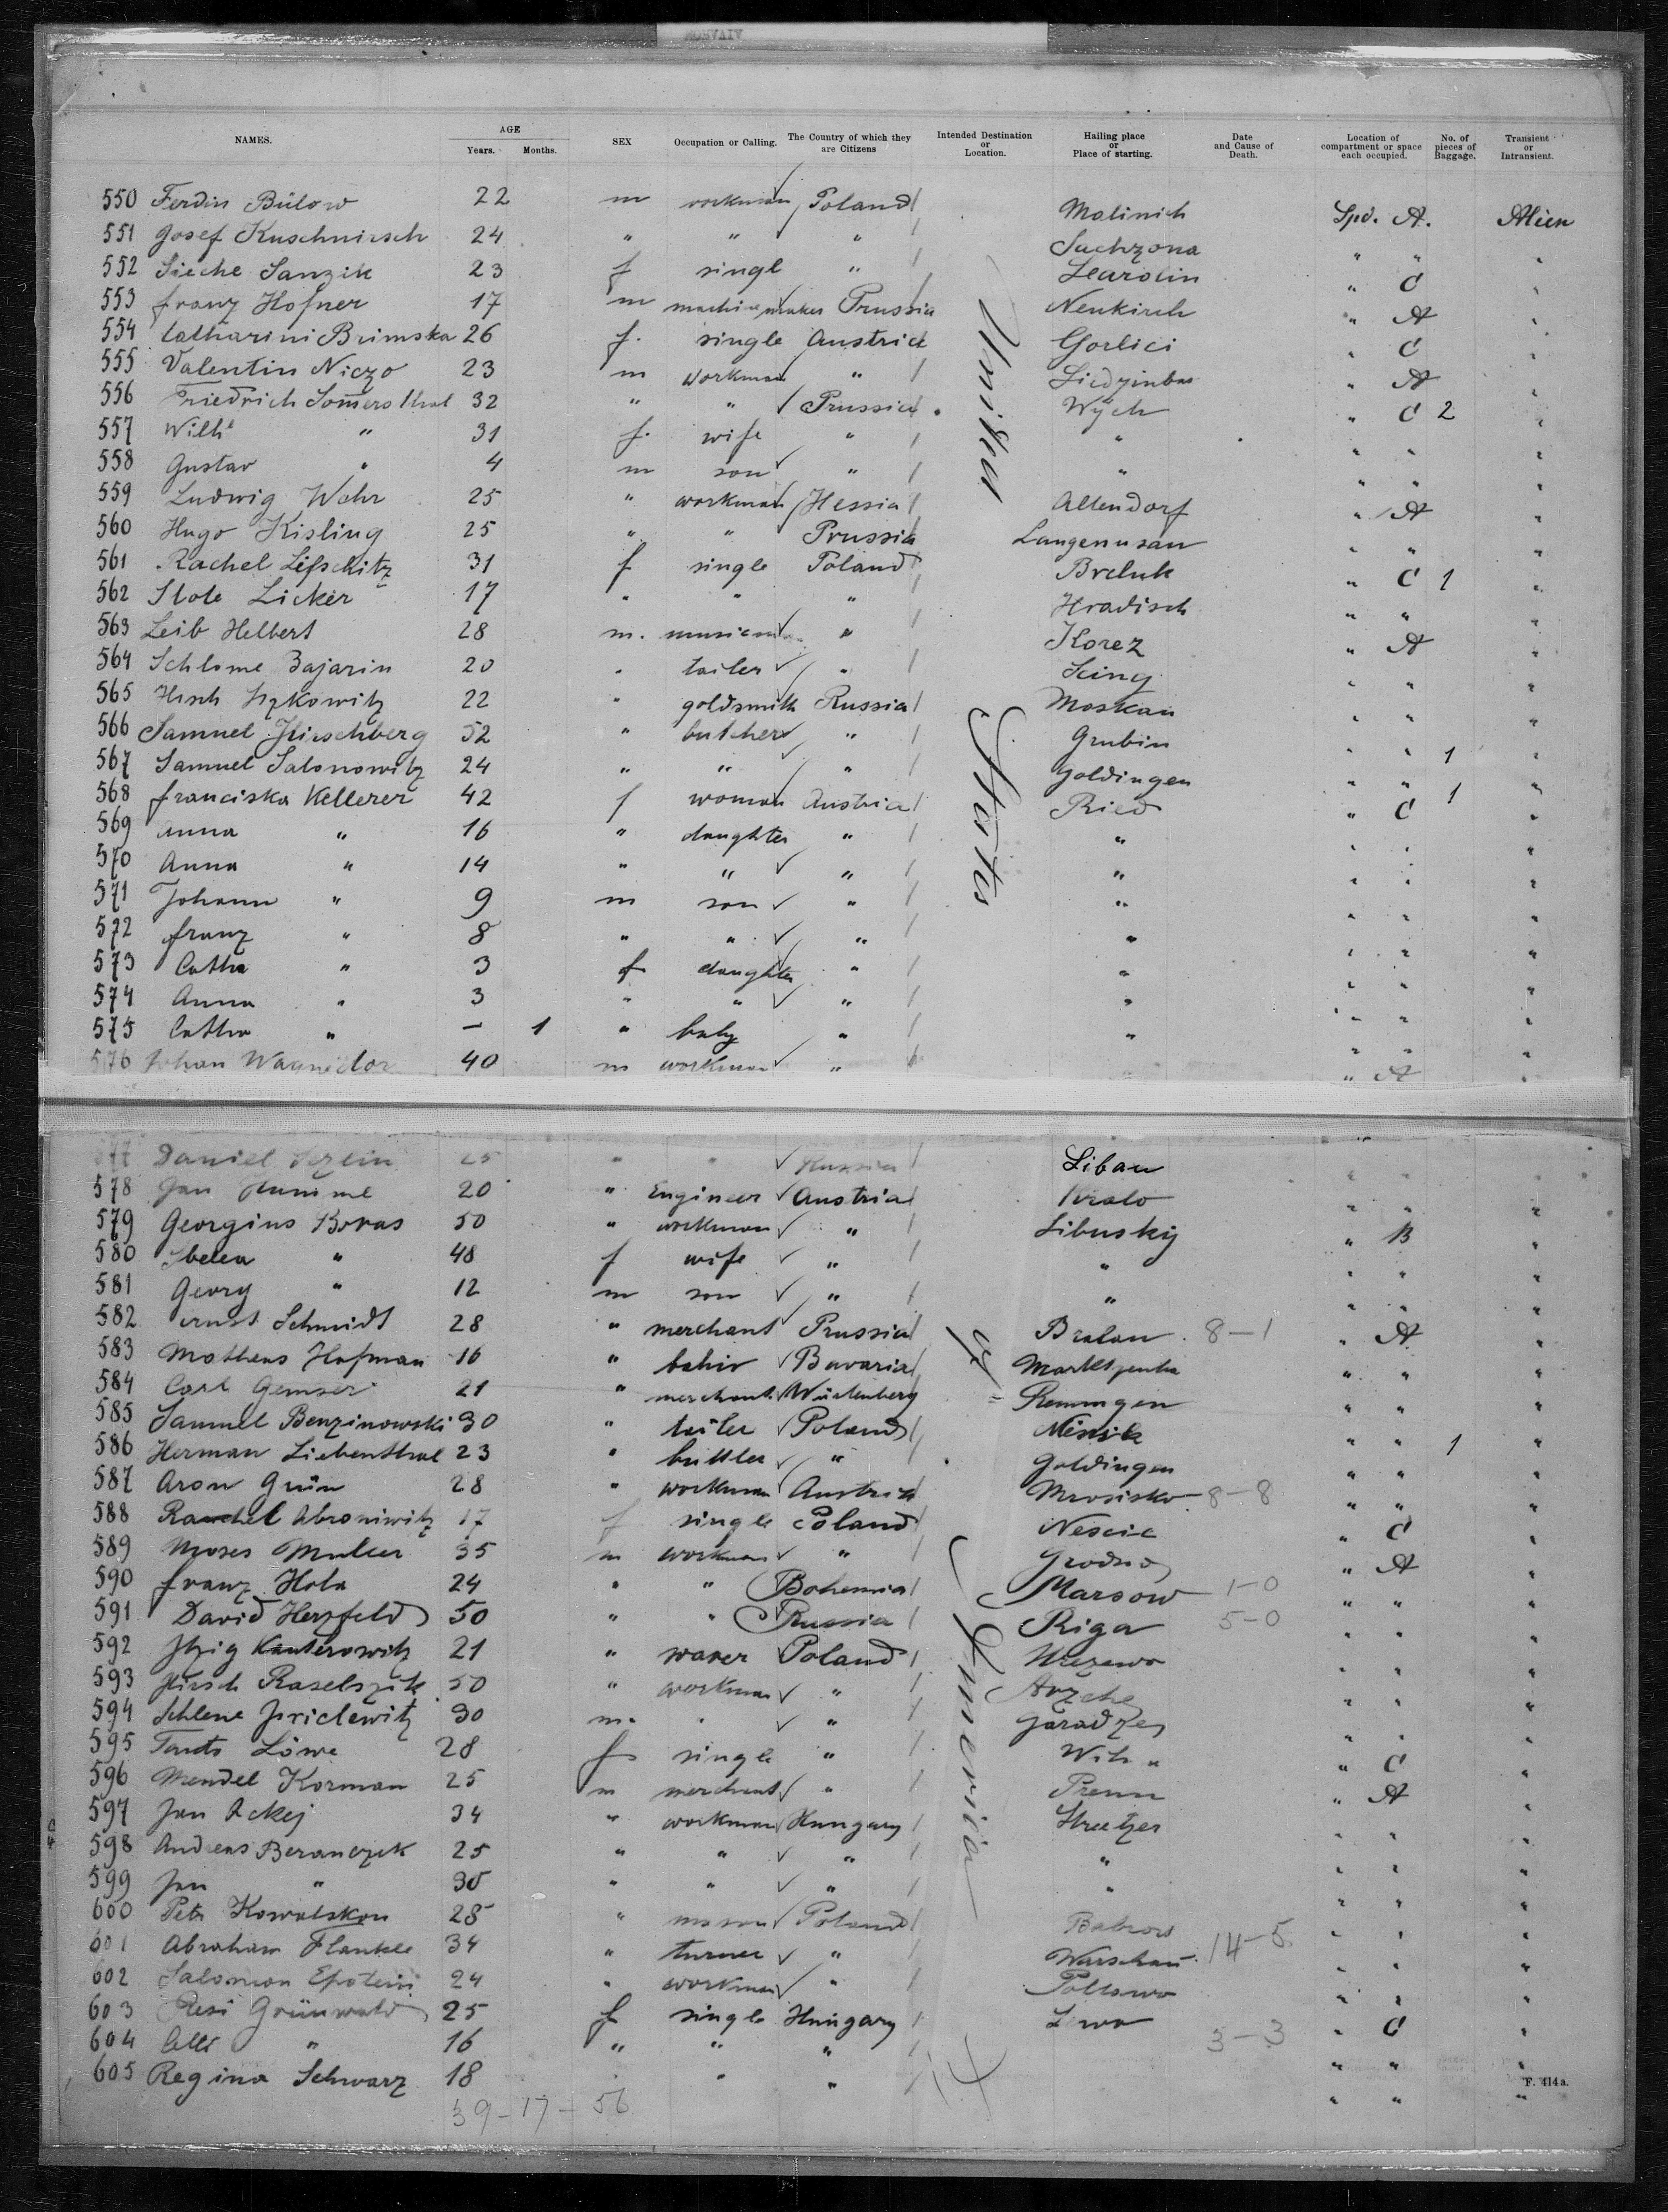 NAMES. AGE Years. Months. SEX Occupation or Calling. The Country of which they are Citizens Intended Destination or Location. Hailing place or Place of starting. Date and Cause of Death. Location of compartment or space each occupied. No. of pieces of Baggage. Transient or Intransient.
550 Ferdin Bülow 22 m workman Poland Malinich Spd. A. Alien
551 Josef Kuschnirsch 24 " " " Suchzona " " "
552 Sieche Sanzik 23 f single " " C "
553 franz Hofner 17 m machine maker Prussia Neukirch " A "
554 Catharini Brimska 26 f. single Austria Gorlici " C "
555 Valentin Niczo 23 m workman " " A "
556 Friedrich Somersthal 32 " " Prussia Wÿch " C 2 "
557 Wilh " 31 f. wife " " " " "
558 Gustav " 4 m son " " " " "
559 Ludwig Wehr 25 " workman Hessia Allendorf " A "
560 Hugo Kisling 25 " " Prussia Langenusau " " "
561 Rachel Lifschitz 31 f single Poland " C 1 "
562 Slote Licker 17 " " " Hradisch " " "
563 Leib Helbert 28 m. musician " Korez " A "
564 Schlome Bajarin 20 " tailer " " " "
565 Hirsh Iszkowitz 22 " goldsmith Russia Moskau " " "
566 Samuel Hirschberg 52 " butcher " Grubin " " 1 "
567 Samuel Salonowitz 24 " " " Goldingen " " 1 "
568 franciska Kellerer 42 f woman Austria Ried " C "
569 Anna " 16 " daughter " " " " "
570 Anna " 14 " " " " " " "
571 Johann " 9 m son " " " " "
572 franz " 8 " " " " " " "
573 Catha " 3 f daughter " " " " "
574 Anna " 3 " " " " " " "
575 Catha " — 1 " baby " " " " "
576 Johan 40 m workman " " A "
577 Daniel 25 " " Russia Libau " " "
578 Jan 20 " Engineer Austria " " "
579 Georgius Boras 50 " workman " Libusky " B "
580 " 48 f wife " " " " "
581 Georg " 12 m son " " " " "
582 Ernst Schmidt 28 " merchant Prussia 8-1 " A "
583 Matheus Hofman 16 " Bavaria " " "
584 Carl Gemser 21 " merchant Würtenberg " " "
585 Samuel Benzinowski 30 " tailer Poland " " 1 "
586 Herman Liebenthal 23 " " Goldingen " " "
587 Aron Grün 28 " workman Austria Mrosisko 8-8 " " "
588 Rachel Abroniwitz 17 f single Poland " C "
589 Moses Muller 35 m workman " Grodno " A "
590 franz Hola 24 " " Bohemia Marsow 1-0 " " "
591 David Herzfeld 50 " " Russia Riga 5-0 " " "
592 Itzig Kanterowitz 21 " waver Poland " " "
593 Hirsch Raselszik 50 " workman " " " "
594 Schlene 30 m. " " " " "
595 Löwe 28 f single " " C "
596 Mendel Korman 25 m merchant " Prenn " A "
597 Jan Ackej 34 " workman Hungary " " "
598 Andreas Beranczek 25 " " " " " " "
599 Jan " 30 " " " " " " "
600 Petr Kowalskon 28 " mason Poland " " "
601 Abraham 34 " turner " Warschau 14-5 " " "
602 Salomon Epstein 24 " workman " Poltawo " " "
603 Resi Grünwald 25 f single Hungary " C "
604 " 16 " " " 3-3 " " "
605 Regina Schwarz 18 " " " " " "
39-17-56
United States of America
F. 414a.